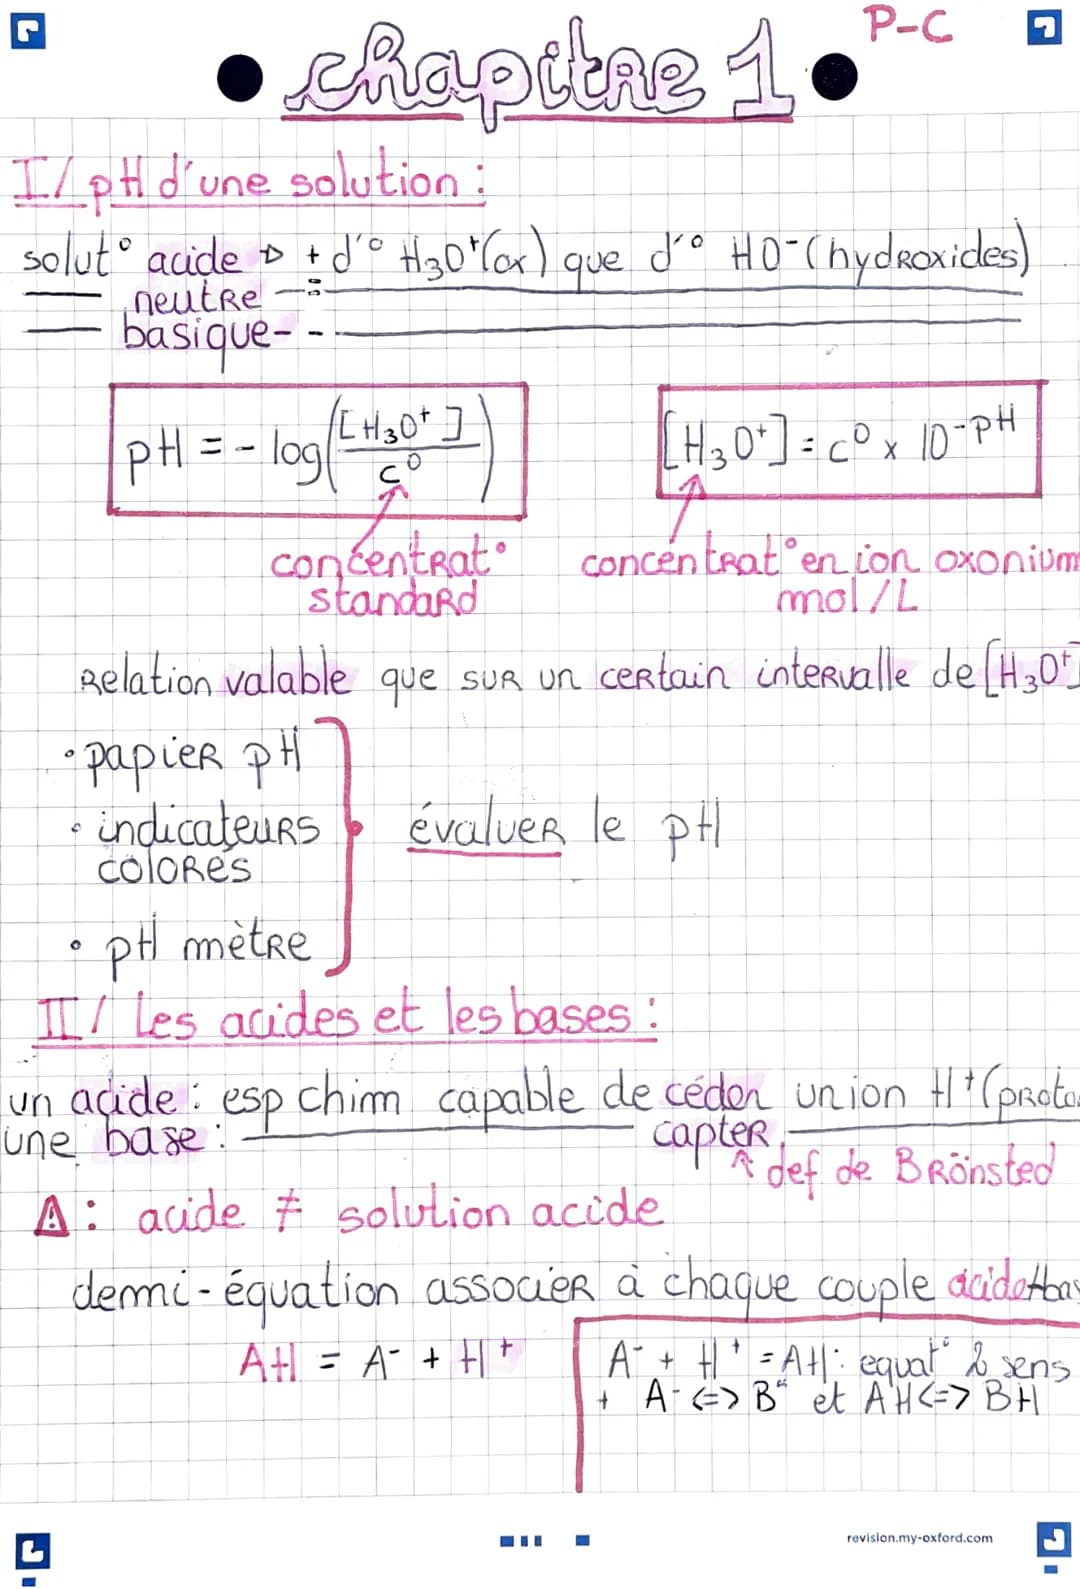 P-C
chapitre 1
I/ pH d'une solution :
solut° acide → + d'° H₃O⁺(ox) que d'° HO⁻(hydroxides)
neutre =
basique - -
pH = - log([H₃O⁺]/c⁰)
[H₃O⁺] = c⁰ x 10⁻ᵖᴴ
concentrat° standard
concentrat° en ion oxonium mol/L
Relation valable que sur un certain intervalle de [H₃O⁺]
• papier pH
• indicateurs
colorés
évaluer le pH
• pH mètre
II/ Les acides et les bases :
un acide : esp chim capable de céder un ion H⁺ (proto
une base : capter
def de Brönsted
⚠ : acide ≠ solution acide
demi-équation associer à chaque couple acide/bas
AH = A⁻ + H⁺
A⁻ + H⁺ = AH : equat° 2 sens
+ A⁻ <=> B et AH <=> BH
revision.my-oxford.com